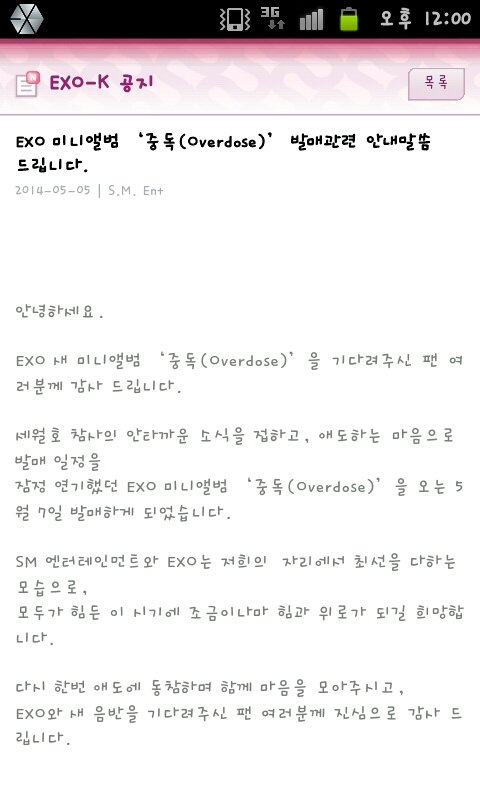 3G 오후 12:00
N EXO-K 공지 목록
EXO 미니앨범 ‘중독(Overdose)’ 발매관련 안내말씀
드립니다.
2014-05-05 | S.M. Ent
안녕하세요.
EXO 새 미니앨범 ‘중독(Overdose)’을 기다려주신 팬 여
러분께 감사 드립니다.
세월호 참사의 안타까운 소식을 접하고, 애도하는 마음으로
발매 일정을
잠정 연기했던 EXO 미니앨범 ‘중독(Overdose)’을 오는 5
월 7일 발매하게 되었습니다.
SM 엔터테인먼트와 EXO는 저희의 자리에서 최선을 다하는
모습으로,
모두가 힘든 이 시기에 조금이나마 힘과 위로가 되길 희망합
니다.
다시 한번 애도에 동참하며 함께 마음을 모아주시고,
EXO와 새 음반을 기다려주신 팬 여러분께 진심으로 감사 드
립니다.